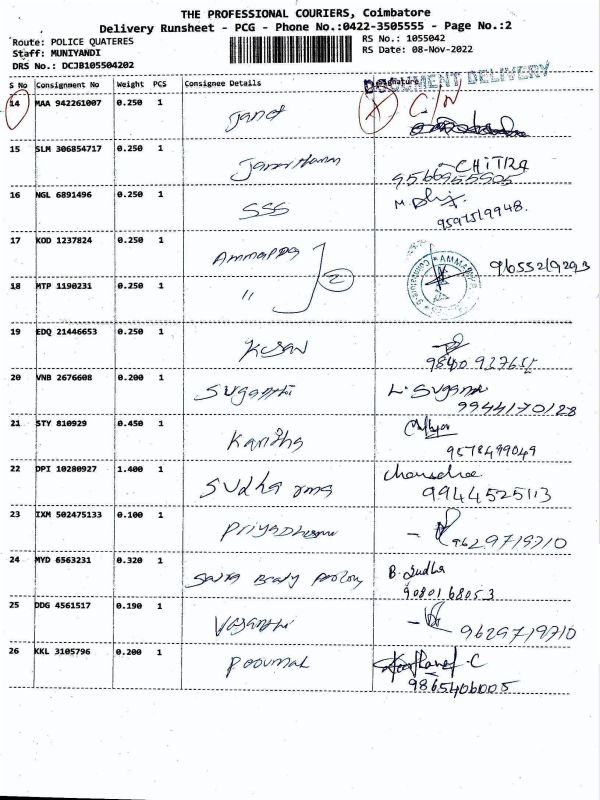 THE PROFESSIONAL COURIERS, Coimbatore
Delivery Runsheet - PCG - Phone No.:0422-3505555 - Page No.:2
Route: POLICE QUATERES
RS No.: 1055042
Staff: MUNIYANDI
RS Date: 08-Nov-2022
DRS No.: DCJB105504202
DOCUMENT DELIVERY
S No Consignment No Weight PCS Consignee Details Signature
14 MAA 942261007 0.250 1 C/N
15 SLM 306854717 0.250 1 CHITRA
9566955905
16 NGL 6891496 0.250 1 SSS M.
9597519948.
17 KOD 1237824 0.250 1 Ammappa 9655219293
2
18 MTP 1190231 0.250 1 "
19 EDQ 21446653 0.250 1
9840 937652
20 VNB 2676608 0.200 1 Suganthi L. Sugan
9944170128
21 STY 810929 0.450 1 Kandha
9578499049
22 DPI 10280927 1.400 1 Sudha
9944525113
23 IXM 502475133 0.100 1 9629719710
24 MYD 6563231 0.320 1 B. Sudha
9080168053
25 DDG 4561517 0.190 1 Vasanthi 9629719710
26 KKL 3105796 0.200 1 Poovmal
9865406005